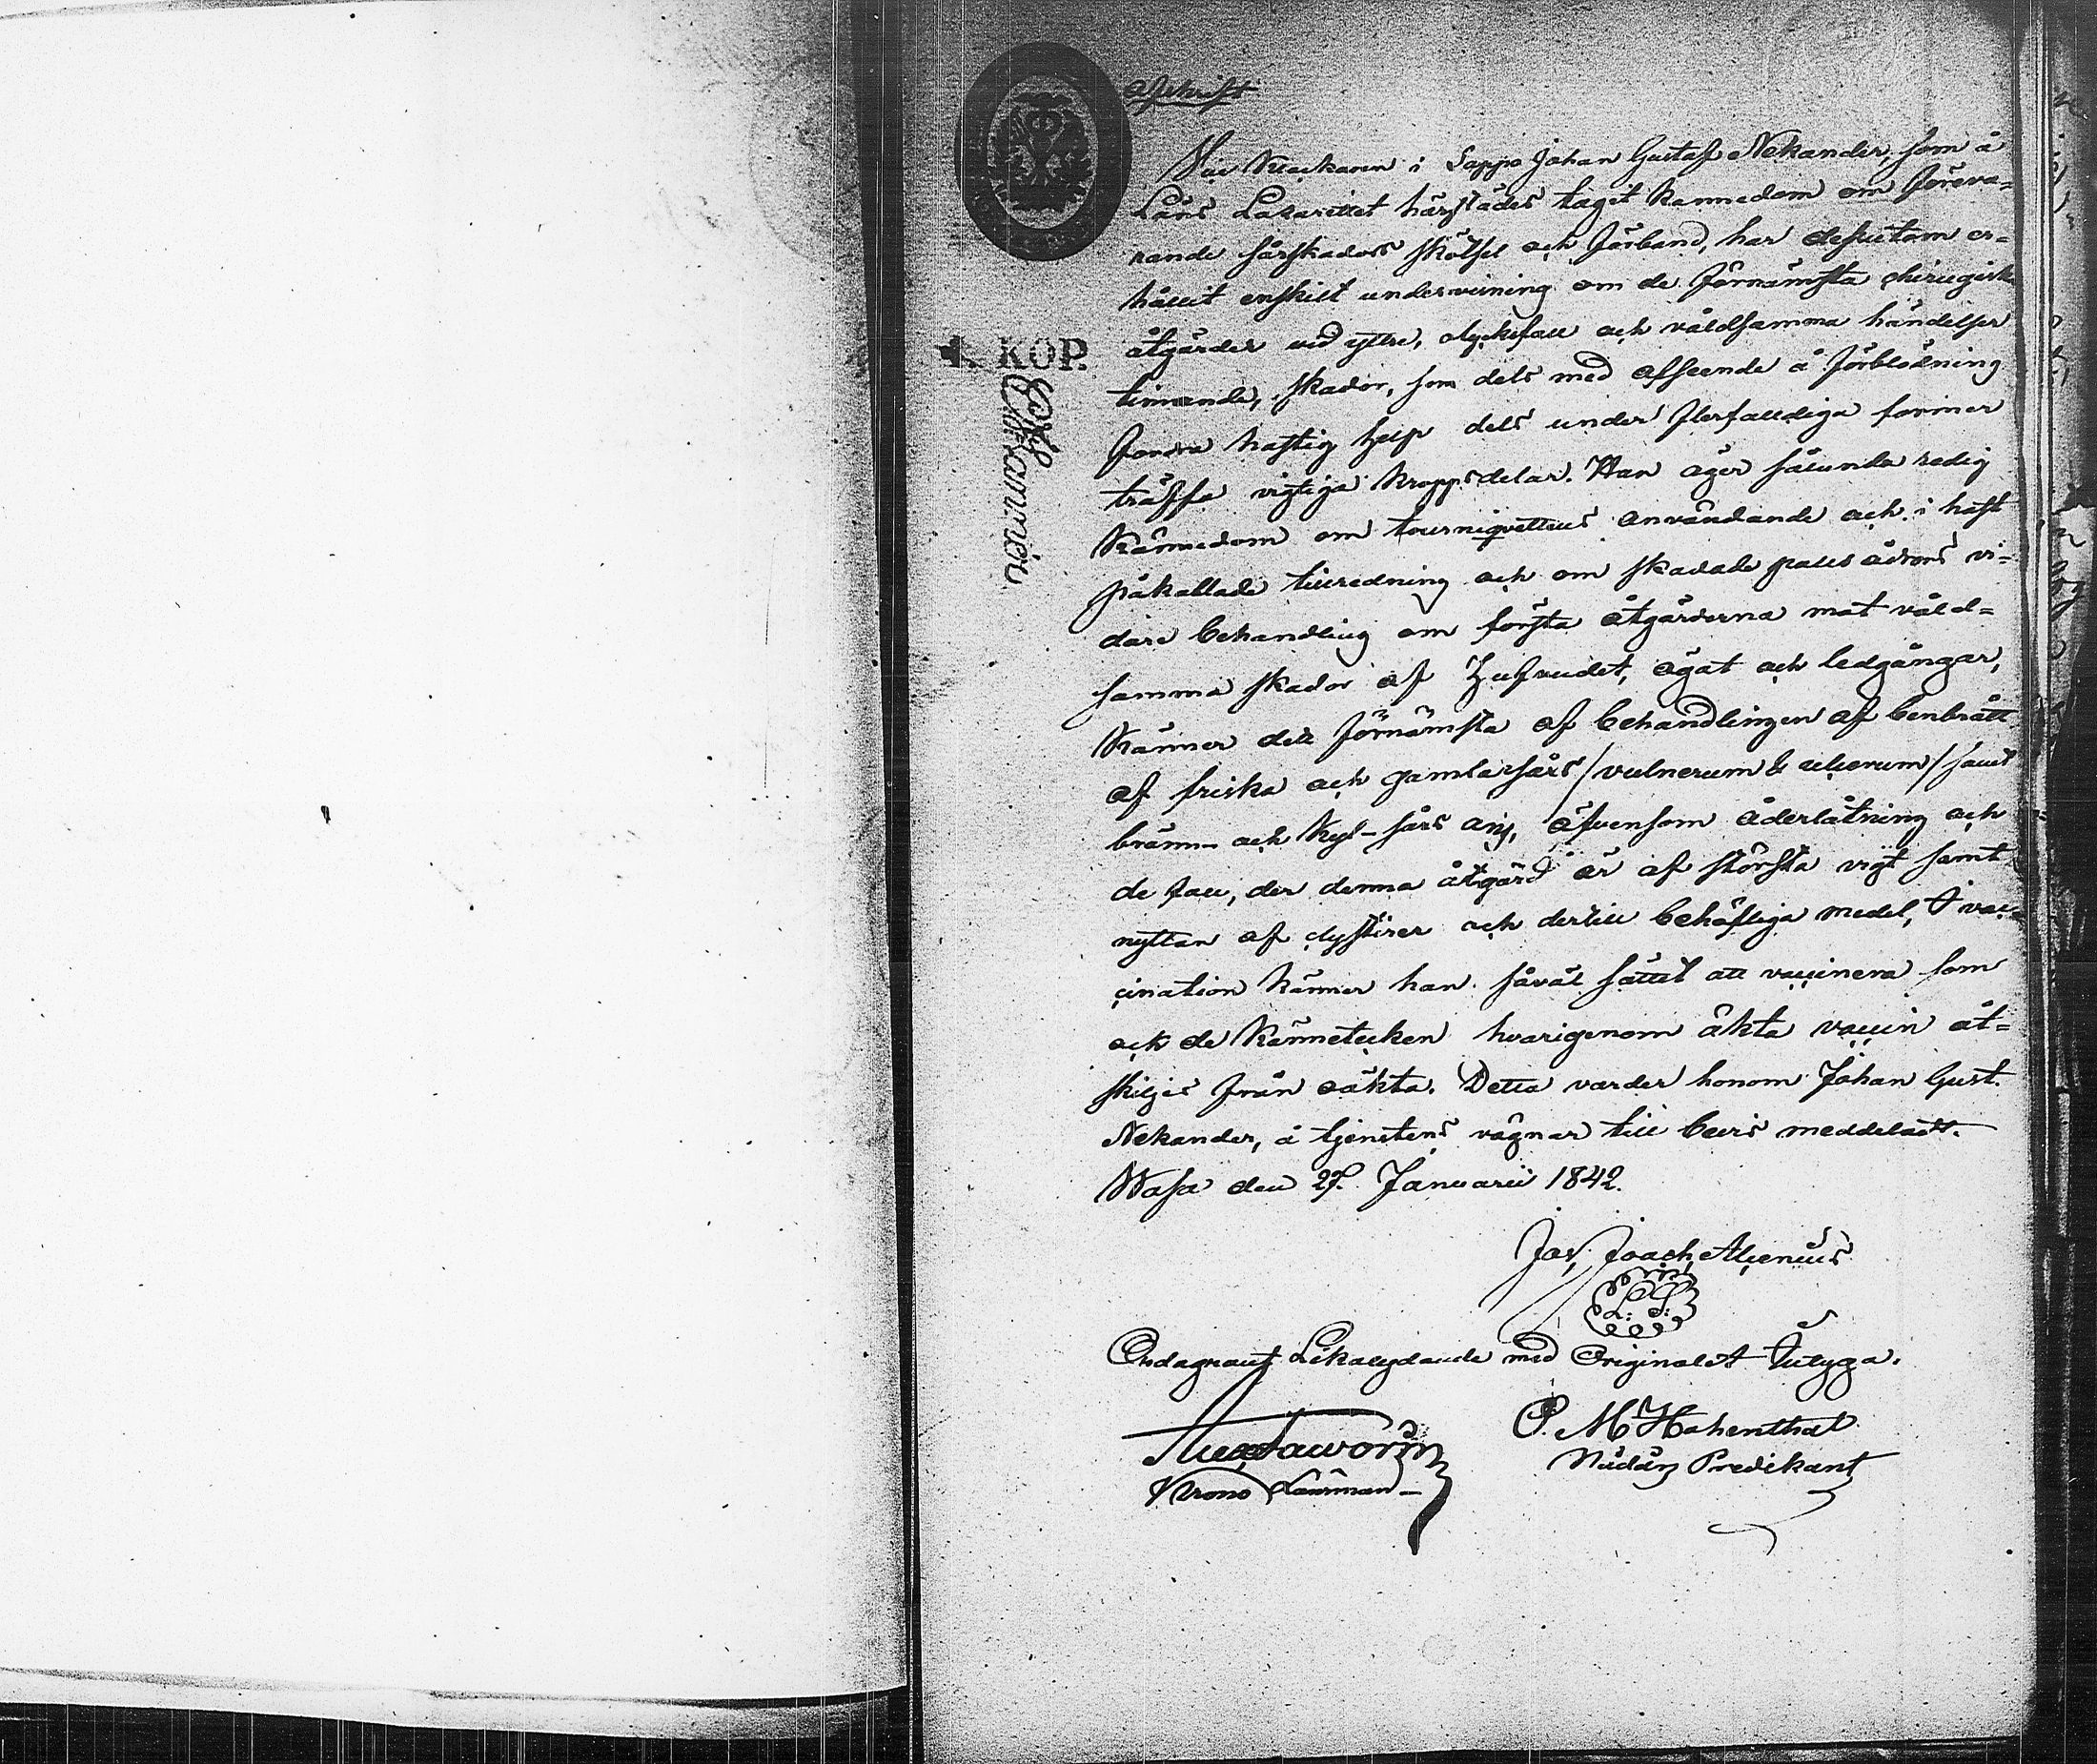 Afskrift
Klockaren i Lappo Johan Gustaf Nekander, som å
Läns Lazarettet härstädes taget kännedom om föreva-
rande sårskadors skötsel och förband, har dessutom er-
hållit enskilt undervisning om de förnämsta chirugiska
åtgärder vid yttre, olycksfall och våldsamma händelser
timande, skador, som dels med afseende å förblödning
fordra hastig help dels under flerfalldiga former
träffa vigtiga kroppsdelar. Han äger sålunda redig
kännedom om tourniqvettens användande och i hast
påkallade tillredning och om skadade pulsådrors vi-
dare behandling om första åtgärderna mot våld-
samma skador af hufvudet, ögat och ledgångar,
känner det förnämsta af behandlingen af benbrått
af friska och gamla sårs /vulnerum & ulcerum/ samt
bränn- och kyl-sårs äfvensom åderlåtning och
de fall, der denna åtgärd är af största vigt samt
nyttan af clystirer och dertill behöfliga medel, I vac-
cination känner han såväl sättet att vaccinera som
ock de kännetecken hvarigenom äkta vaccin åt-
skiljes från oäkta. Detta varder honom Johan Gust.
Nekander, å tjenstens vägnar till bevis meddeladt.
Wasa den 27. Januarii 1842.
Joach. Alcenius
L: S:
Ordagrant Likalydande med Originalet intyga.
P. M Hohenthal
Nådårs Predikant
Krono Länsman
4. KOP.